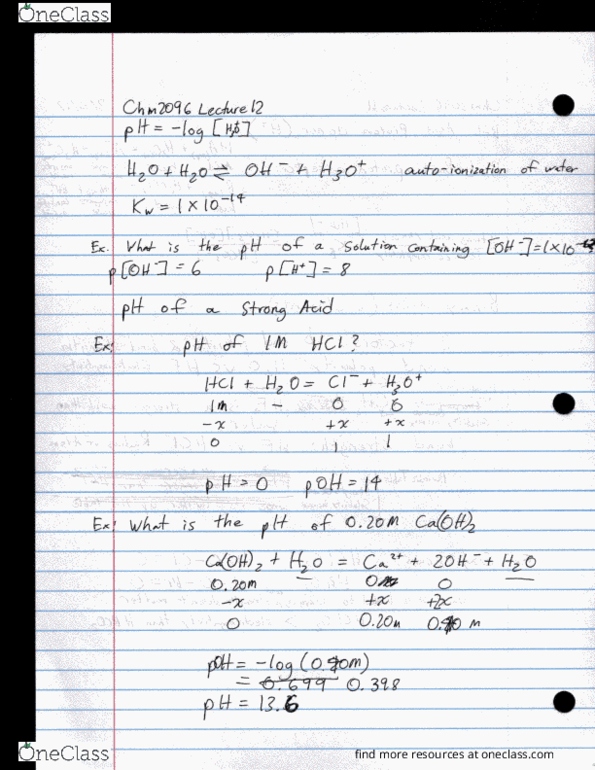 OneClass
Chm2096 Lecture 12
pH = -log [H3O+]
H2O + H2O ⇌ OH⁻ + H3O⁺ auto-ionization of water
Kw = 1 x 10⁻¹⁴
Ex. What is the pH of a solution containing [OH⁻] = 1x10
p[OH⁻] = 6 p[H⁺] = 8
pH of a Strong Acid
Ex: pH of 1M HCl?
HCl + H2O = Cl⁻ + H3O⁺
1m - 0 0
-x +x +x
0 1 1
pH = 0 pOH = 14
Ex: What is the pH of 0.20M Ca(OH)2
Ca(OH)2 + H2O = Ca²⁺ + 2OH⁻ + H2O
0.20m 0 0
-x +x +2x
0 0.20m 0.40 m
pOH = -log (0.40m)
= 0.699 0.398
pH = 13.6
OneClass
find more resources at oneclass.com